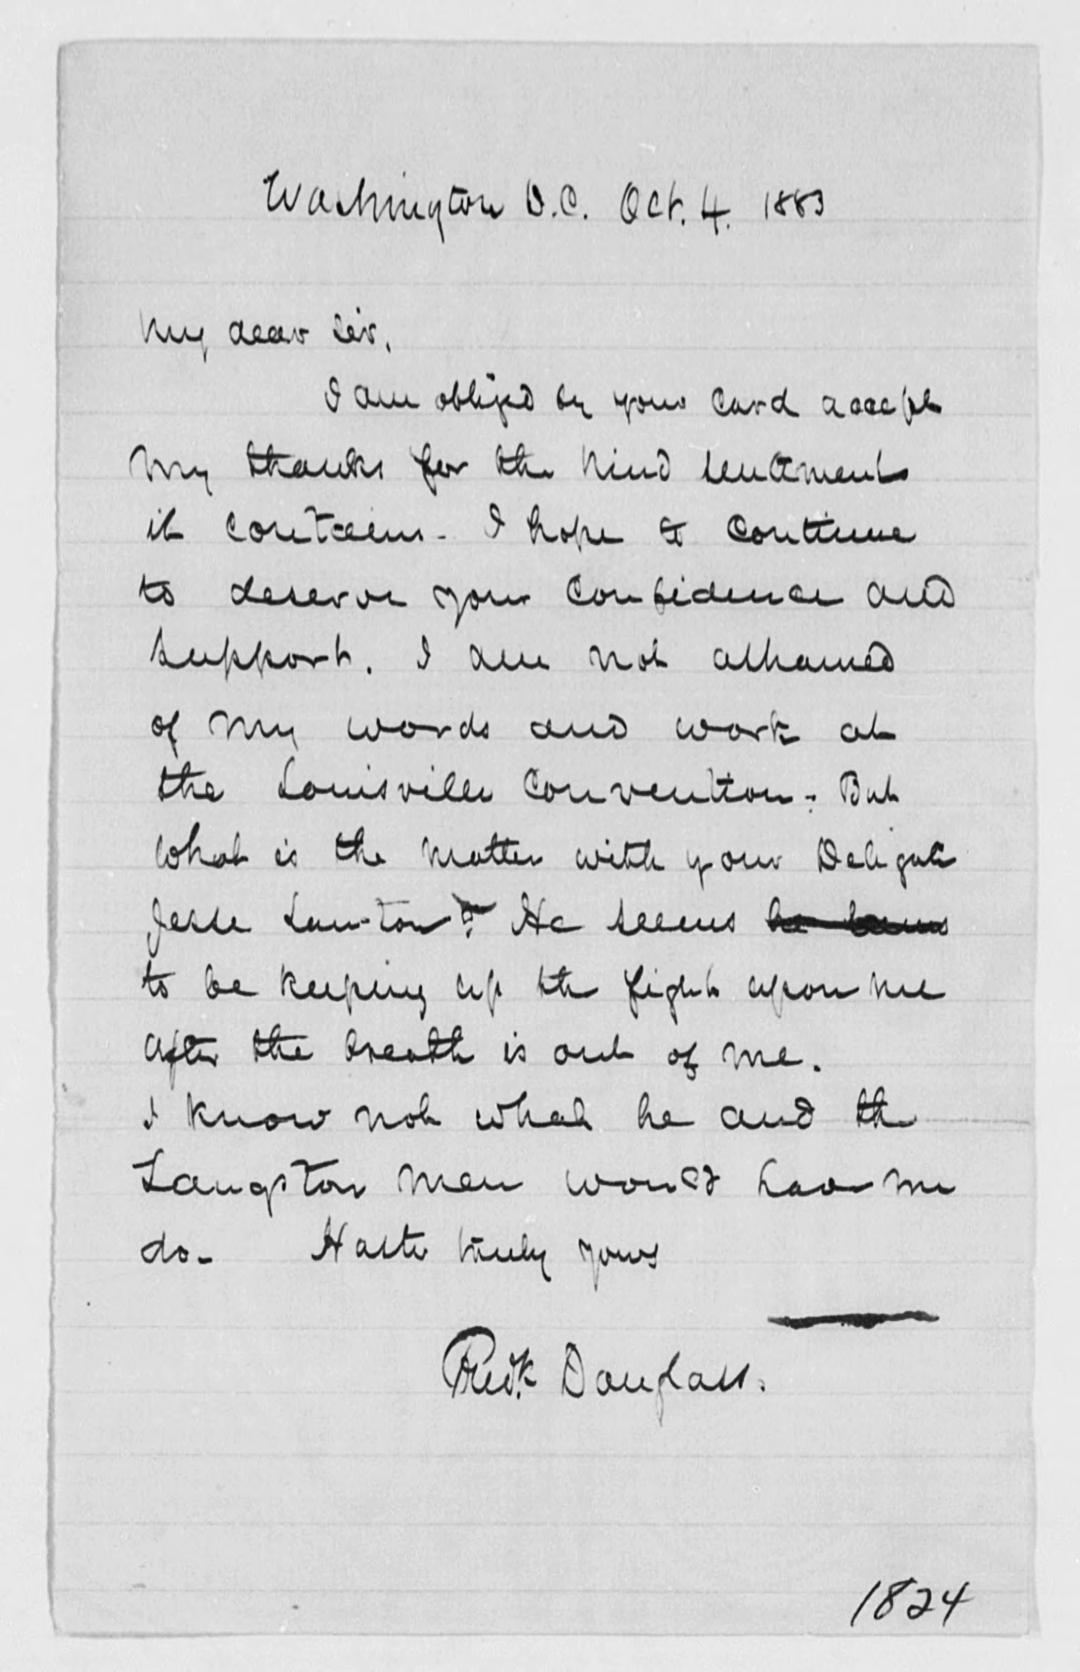 Washington D.C. Oct. 4. 1883
My dear Sir,
I am obliged by your card accept
my thanks for the kind sentiments
it contains - I hope to continue
to deserve your confidence and
support. I am not ashamed
of my words and work at
the Louisville Convention - But
what is the matter with your Delegate
Jesse Lawton? He seems
to be keeping up the fight upon me
after the breath is out of me.
I know not what he and the
Langston men would have me
do - Haste truly yours
Fredk Douglass.
1824